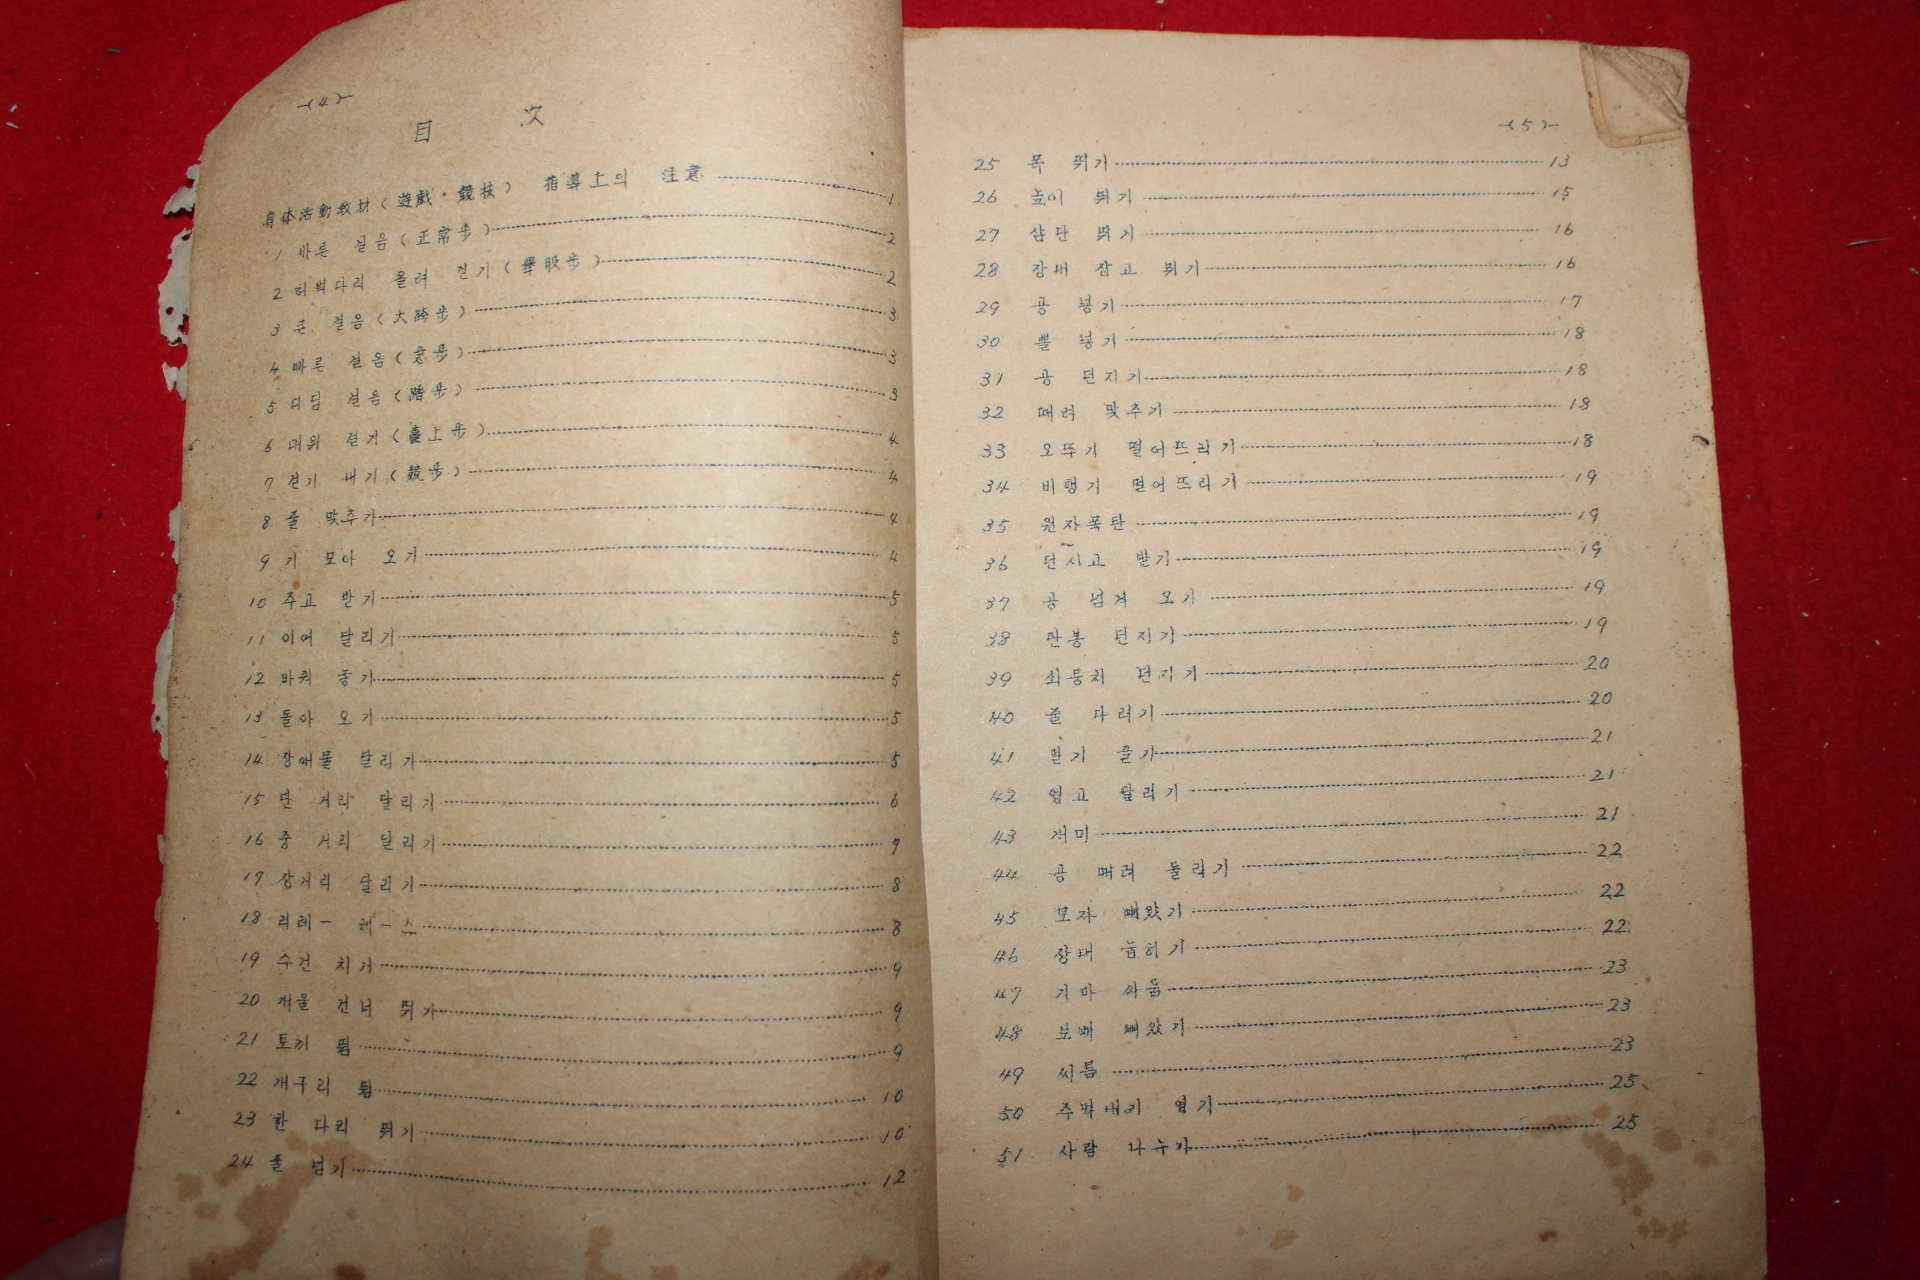 (4)
目 次
身体活動教材(遊戱·競技) 指導上의 注意 1
1 바른 걸음(正常步) 2
2 허벅다리 올려 걷기(擧股步) 2
3 큰 걸음(大跨步) 3
4 빠른 걸음(急步) 3
5 디딤 걸음(踏步) 3
6 대위 걷기(臺上步) 4
7 걷기 내기(競步) 4
8 줄 맞추기 4
9 기 모아 오기 4
10 주고 받기 5
11 이어 달리기 5
12 바꿔 놓기 5
13 돌아 오기 5
14 장애물 달리기 5
15 단 거리 달리기 6
16 중 거리 달리기 7
17 장거리 달리기 8
18 리레ー 레ー스 8
19 수건 치기 9
20 개울 건너 뛰기 9
21 토끼 뜀 9
22 개구리 뜀 10
23 한 다리 뛰기 10
24 줄 넘기 12
(5)
25 폭 뛰기 13
26 높이 뛰기 15
27 삼단 뛰기 16
28 장대 잡고 뛰기 16
29 공 넣기 17
30 뽈 넣기 18
31 공 던지기 18
32 때려 맞추기 18
33 오뚜기 떨어뜨리기 18
34 비행기 떨어뜨리기 19
35 원자폭탄 19
36 던지고 받기 19
37 공 넘겨 오기 19
38 단봉 던지기 19
39 쇠뭉치 던지기 20
40 줄 다리기 20
41 말기 풀기 21
42 업고 달리기 21
43 개미 21
44 공 때려 돌리기 22
45 모자 빼앗기 22
46 장대 눕히기 22
47 기마 싸움 23
48 보배 빼앗기 23
49 씨름 23
50 주먹내기 업기 25
51 사람 나누기 25